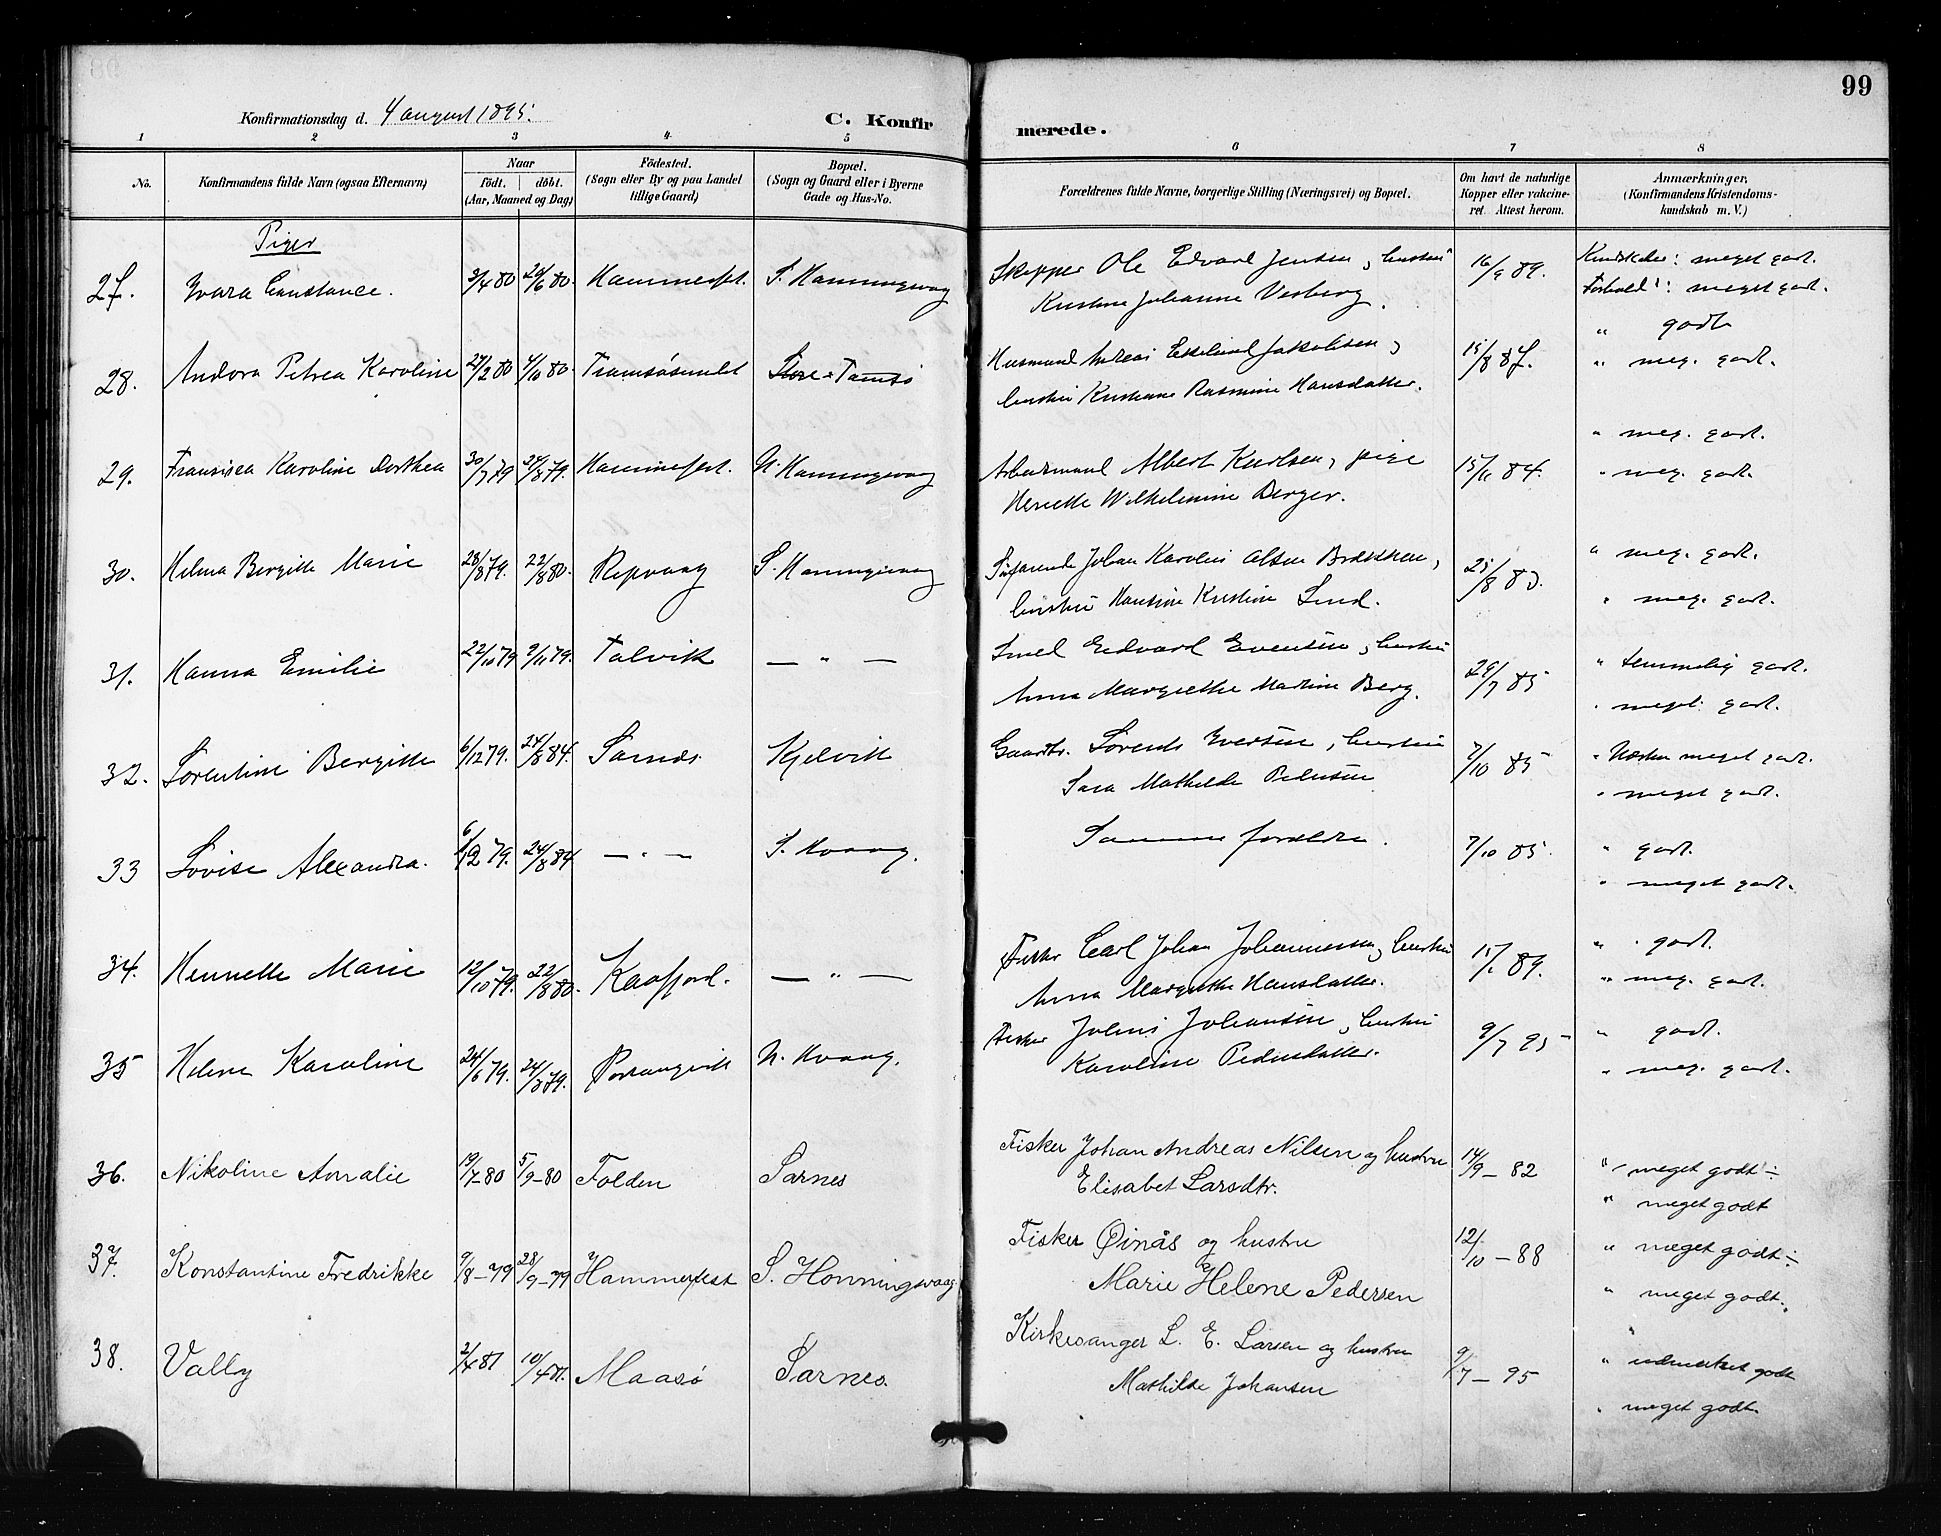 99
Konfirmationsdag d. 4 august 1895.
C. Konfirmerede.
1 2 3 4 5 6 7 8
No.
Konfirmandens fulde Navn (ogsaa Efternavn)
Naar
födt. döbt.
(Aar, Maaned og Dag)
Födested.
(Sogn eller By og paa Landet
tillige Gaard)
Bopæl.
(Sogn og Gaard eller i Byerne
Gade og Hus-No.
Forældrenes fulde Navne, borgerlige Stilling (Næringsvei) og Bopæl.
Om havt de naturlige
Kopper eller vakcine-
ret. Attest herom.
Anmærkninger,
(Konfirmandens Kristendoms-
kundskab m. V.)
Piger
27. Ivara Constance. 3/4 80 20/6 80. Hammerfest. S. Honningsvaag Skipper Ole Edvard Jensen, hustru 16/9 89. Kundskaber: meget godt.
Kristine Johanne Vesberg. Forhold: meget godt.
28. Andora Petrea Karoline 27/2 80 4/10 80. Tromsøsundet Store-Tamsø Husmand Andreas Jakobsen, 15/8 87. " godt
hustru Kristiane Rasmine Hansdatter. " meg. godt.
29. Fransisca Karoline Dorthea 30/7 79 24/8 79. Hammerfest. N. Honningsvaag Arbeidsmand Albert Karlsen, pige 15/11 84. " meg. godt.
Henrette Wilhelmine Berger. " meg. godt.
30. Helma Bergitte Marie 28/8 79. 22/8 80. Repvaag S. Honningsvaag Johan Karolius Olsen Brækken, 25/8 83. " meg. godt.
hustru Hansine Kristine Lund. " meg. godt.
31. Hanna Emilie 22/10 79 9/11 79. Talvik — " — Smed Edvard Evensen, hustru 29/7 85 " temmelig godt.
Anna Margrethe Martine Berg. " meget godt.
32. Sorentine Bergitte 6/12 79. 24/8 84. Sarnes Kjelvik Gaardbr. Sørends Iversen, hustru 7/10 85 " Næsten meget godt.
Sara Mathilde Pedersen " meget godt.
33 Lovise Alexandra. 6/12 79. 24/8 84 — " — S. Hvaag. Samme foreldre. 7/10 85. " godt.
" meget godt.
34. Hennette Marie 12/10 79. 22/8 80. Kaafjord. — " — Fisker Carl Johan Johannessen, hustru 15/1 89. " godt.
Anna Margrethe Hansdatter. " meg. godt.
35 Helene Karoline 24/6 79. 24/8 79. Porsangvik N. Hvaag. Fisker Julius Johansen, hustru 9/7 95 " godt.
Karoline Pedersdatter. " meg. godt.
36. Nikoline Amalie 19/7-80 5/9-80 Folden Sarnes Fisker Johan Andreas Nilsen og hustru 14/9-82 " meget godt ÷
Elisabet Larsdtr. " meget godt
37. Konstantine Fredrikke 9/8-79 28/9-79 Hammerfest S. Honningsvaag Fisker Øinås og hustru 12/10-88 " meget godt ÷
Marie Helene Pedersen " meget godt.
38. Vally 2/4 81 10/4 81. Maasø Sarnes. Kirkesanger L. E. Larsen og hustru 9/7-95 " udmerket godt
Mathilde Johansen " meget godt.